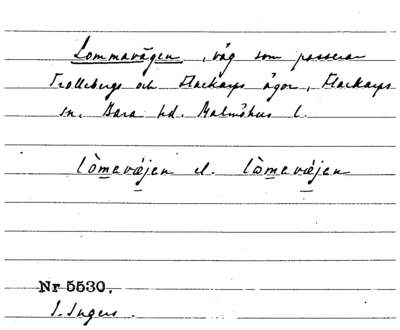 Lommavägen, väg som passerar
Trollebergs och Flackarps ägor, Flackarps
sn, Bara hd. Malmöhus l.
lòmavæjen el. lòmavæjen
Nr 5530.
I. Ingers.